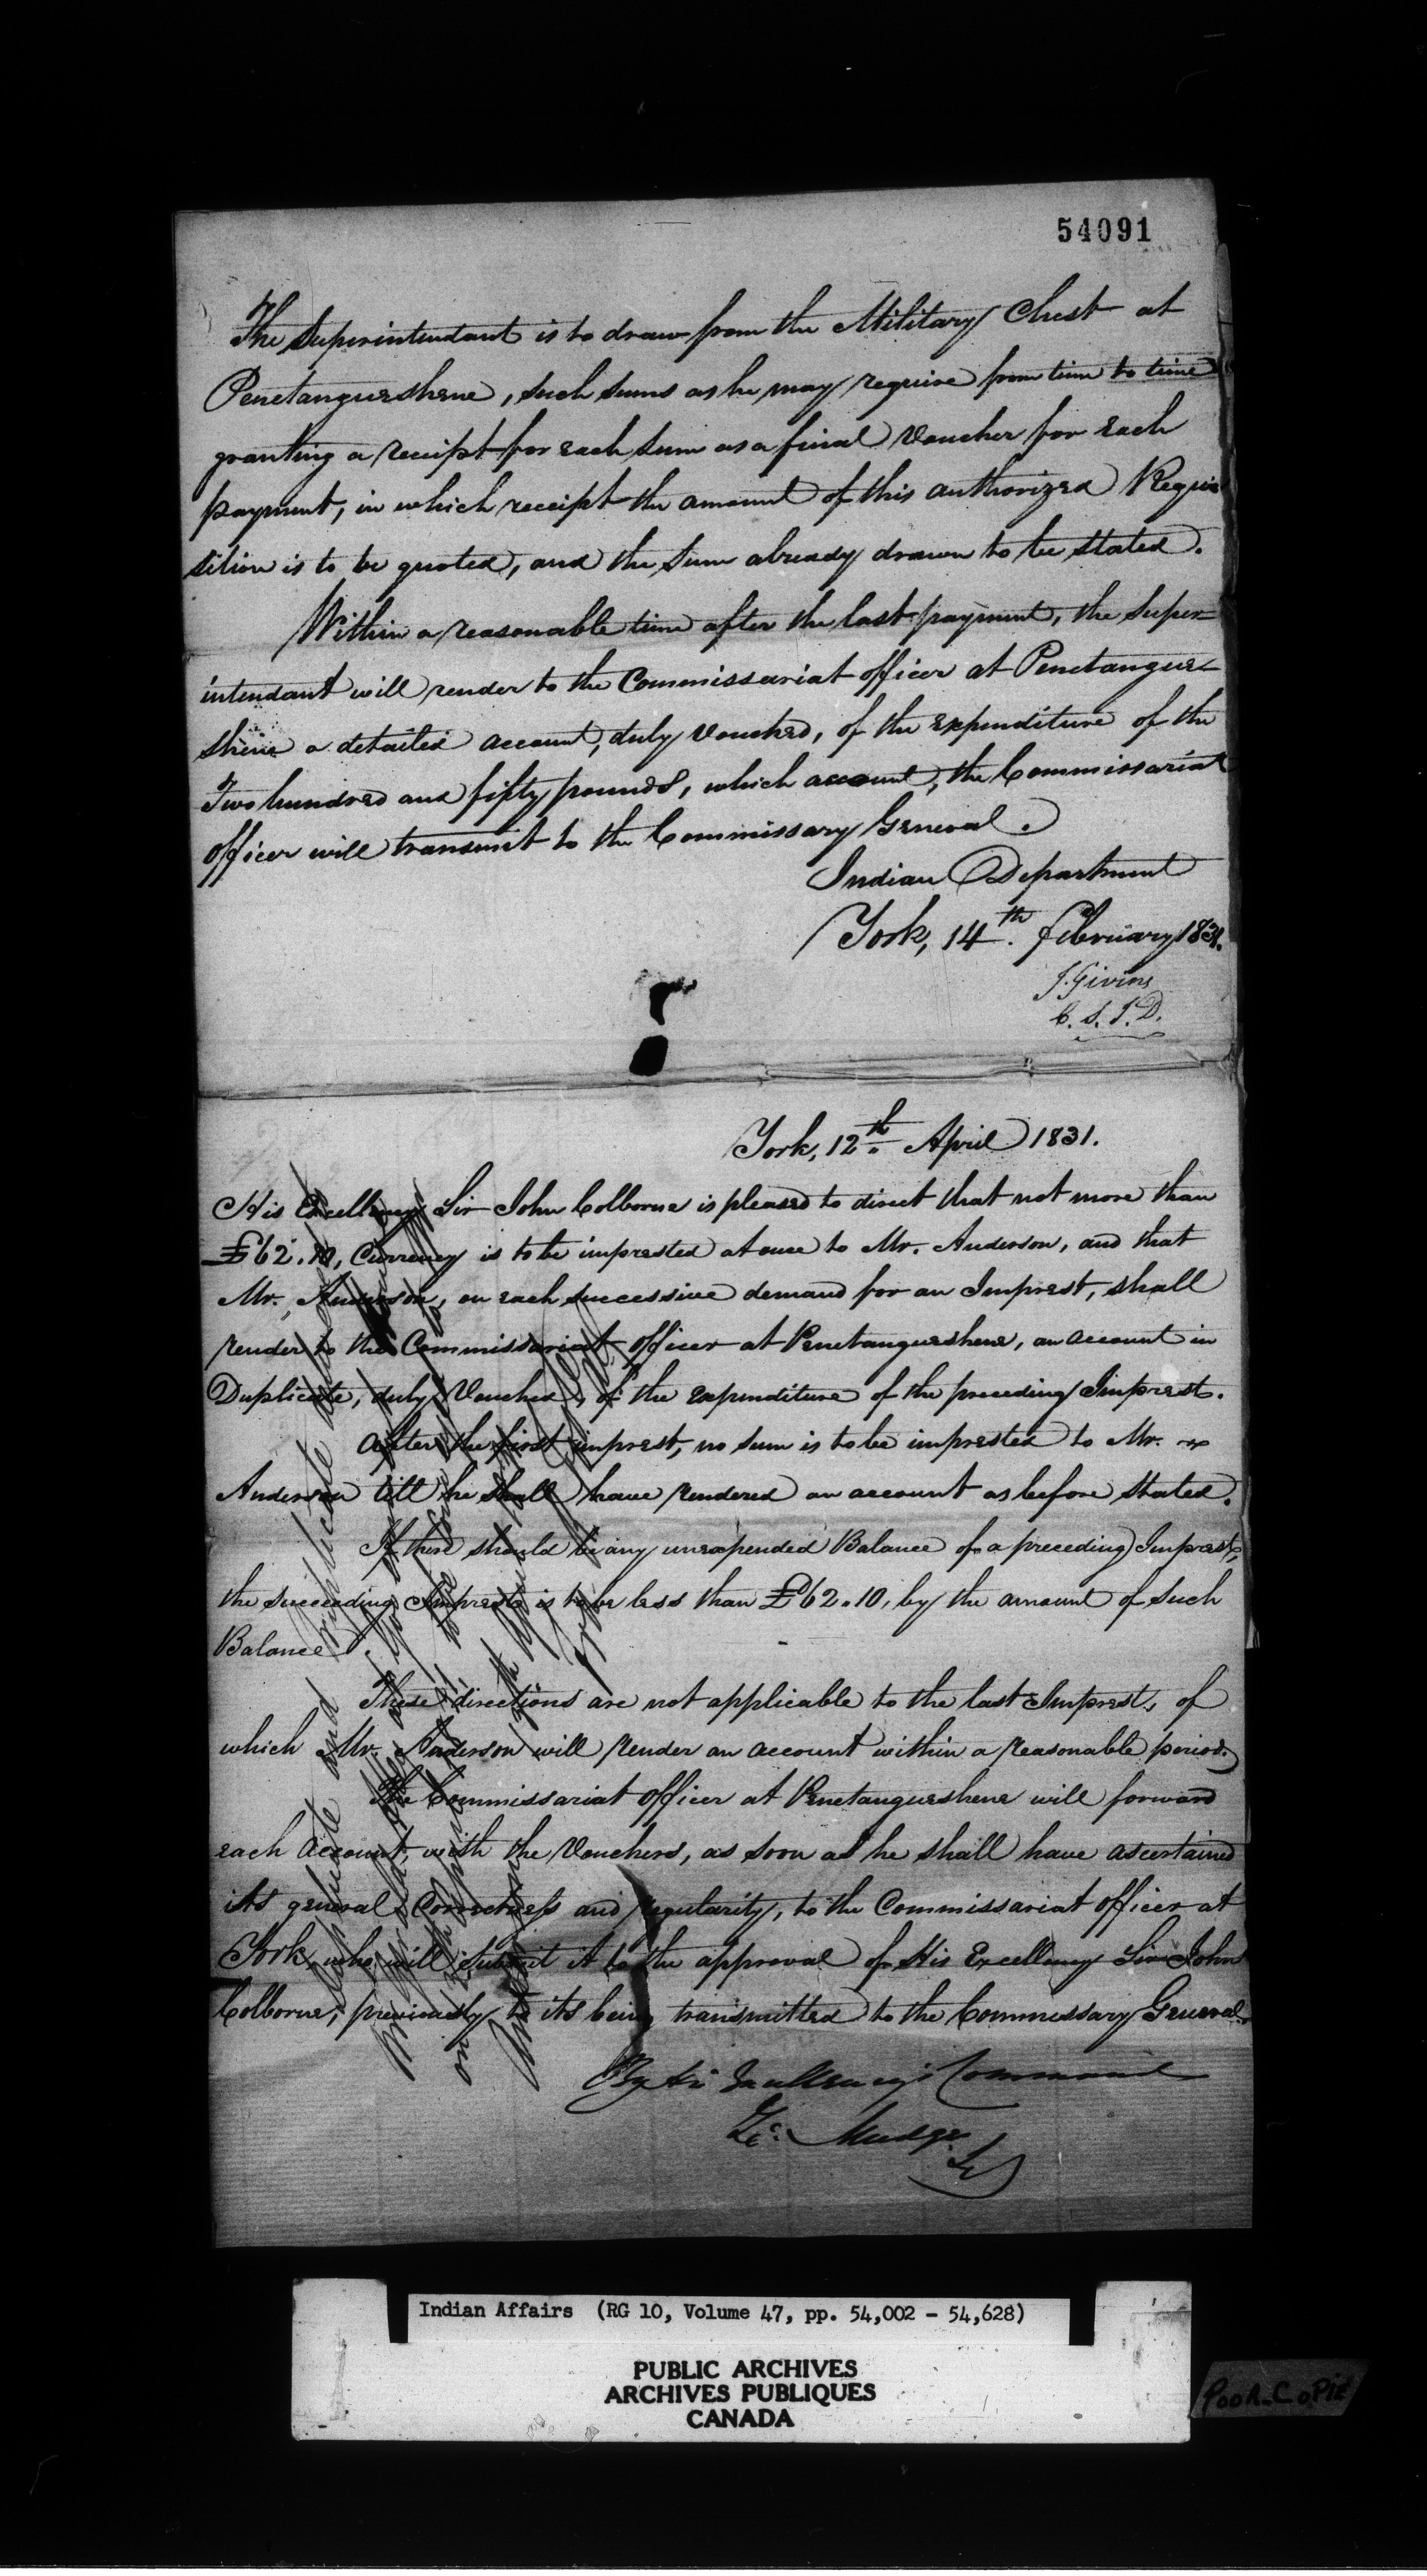 54091
The Superintendant is to draw from the Military Chest at
Penetangueshene, such sums as he may require from time to time
granting a receipt for each sum as a final Voucher for each
payment, in which receipt the amount of this authorized Requi-
sition is to be quoted, and the sum already drawn to be stated.
Within a reasonable time after the last payment, the Super-
intendant will render to the Commissariat officer at Penetangue-
shene a detailed account, duly Vouched, of the expenditure of the
Two hundred and fifty pounds, which account, the Commissariat
officer will transmit to the Commissary General.
Indian Department
York, 14th. February 1831.
J. Givins
C. S. I. D.
York, 12th. April 1831.
His Excellency Sir John Colborne is pleased to direct that not more than
£62.10, Currency is to be imprested at once to Mr. Anderson, and that
Mr. Anderson, on each successive demand for an Imprest, shall
render to the Commissariat officer at Penetangueshene, an account in
Duplicate, duly Vouched, of the expenditure of the preceding Imprest.
After the first imprest, no sum is to be imprested to Mr.
Anderson till he shall have rendered an account as before stated.
If there should be any unexpended Balance of a preceding Imprest,
the succeeding Imprest is to be less than £62.10, by the amount of such
Balance.
These directions are not applicable to the last Imprest, of
which Mr. Anderson will render an account within a reasonable period.
The Commissariat officer at Penetangueshene will forward
each Account, with the Vouchers, as soon as he shall have ascertained
its general Correctness and regularity, to the Commissariat officer at
York, who will submit it to the approval of His Excellency Sir John
Colborne, previously to its being transmitted to the Commissary General.
By His Excellency's Command
Z. Mudge
Duplicate and Triplicate
Indian Affairs (RG 10, Volume 47, pp. 54,002 - 54,628)
PUBLIC ARCHIVES
ARCHIVES PUBLIQUES
CANADA
POOR COPIE